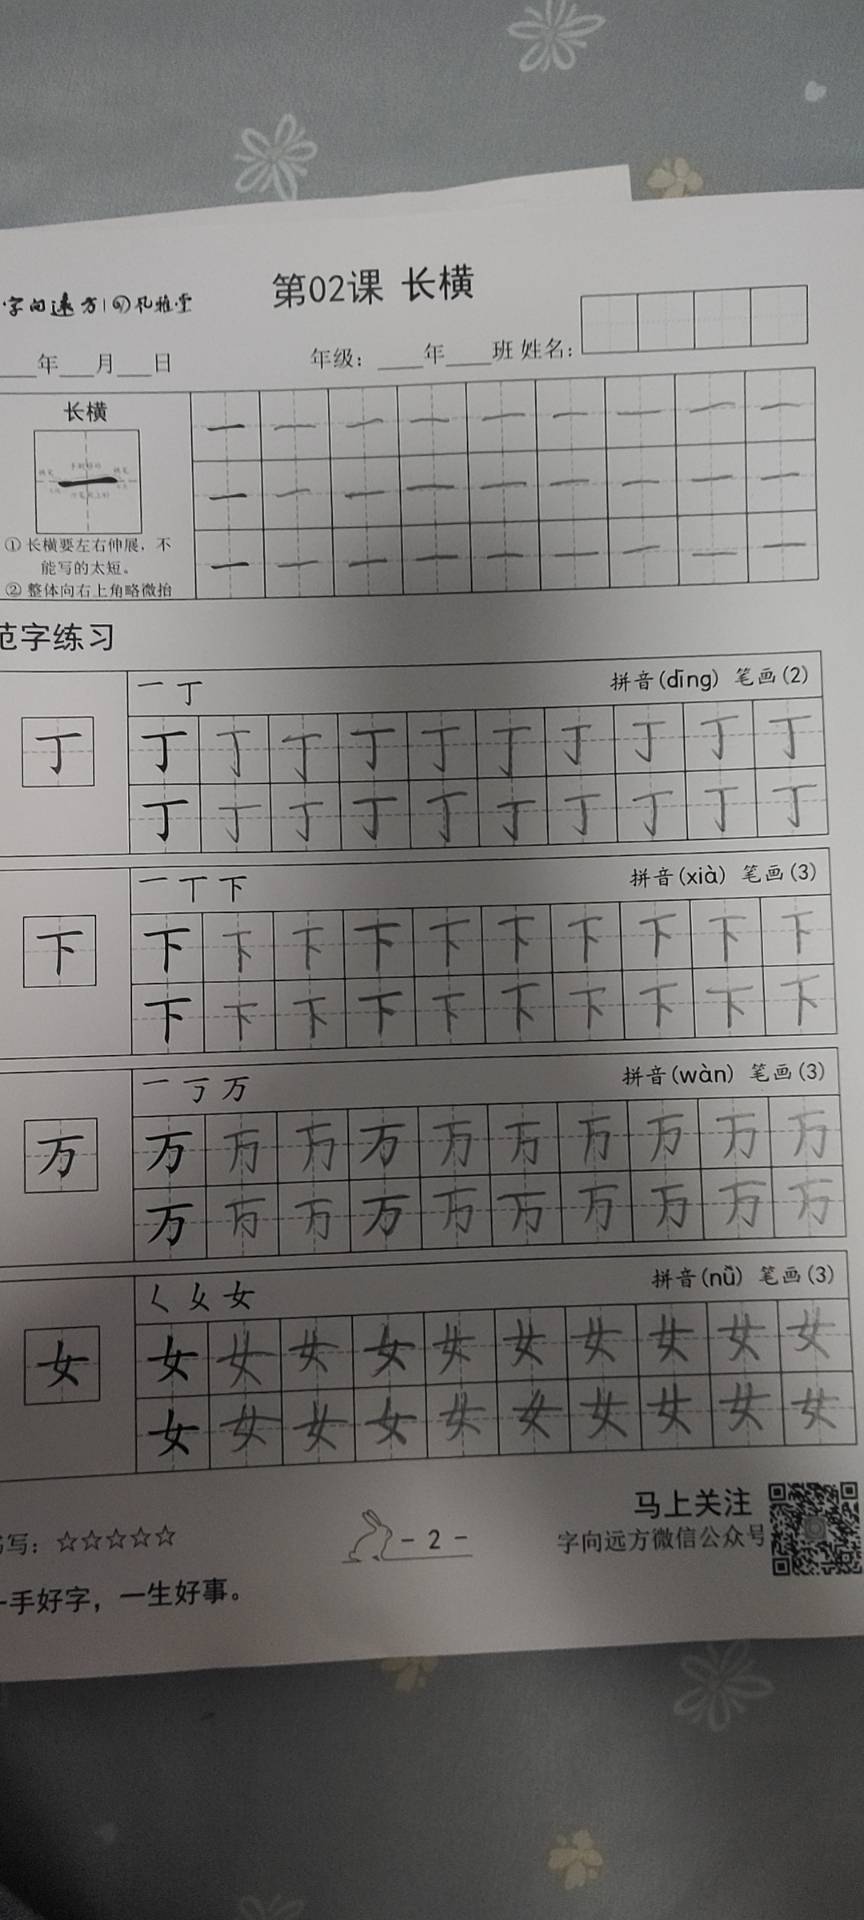 字向远方 孔雅堂
第02课 长横
年 月 日 年级： 年 班 姓名：
长横
一 一 一 一 一 一 一 一 一
一 一 一 一 一 一 一 一 一
一 一 一 一 一 一 一 一 一
①长横要左右伸展，不
能写的太短。
②整体向右上角略微抬
范字练习
一 丁 拼音(dīng) 笔画(2)
丁
丁 丁 丁 丁 丁 丁 丁 丁 丁 丁
丁 丁 丁 丁 丁 丁 丁 丁 丁 丁
一 丅 下 拼音(xià) 笔画(3)
下
下 下 下 下 下 下 下 下 下 下
下 下 下 下 下 下 下 下 下 下
一 丂 万 拼音(wàn) 笔画(3)
万
万 万 万 万 万 万 万 万 万 万
万 万 万 万 万 万 万 万 万 万
女 拼音(nǚ) 笔画(3)
女
女 女 女 女 女 女 女 女 女 女
女 女 女 女 女 女 女 女 女 女
写：☆☆☆☆☆
- 2 -
马上关注
字向远方微信公众号
一手好字，一生好事。